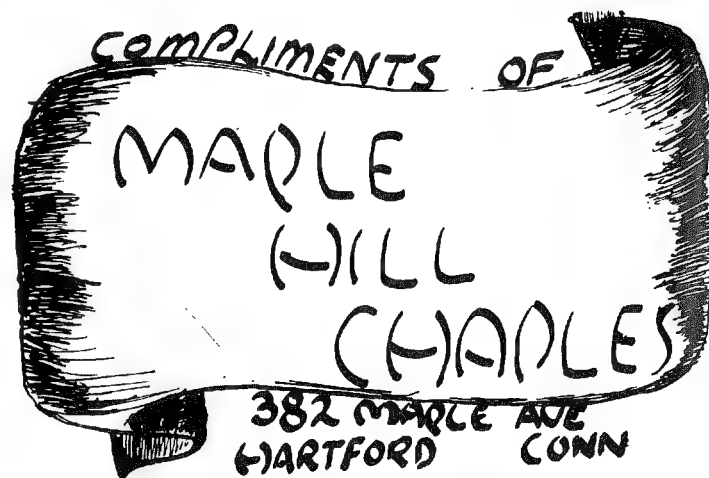 COMPLIMENTS OF
MAPLE
HILL
CHAPLES
382 MAPLE AVE
HARTFORD CONN